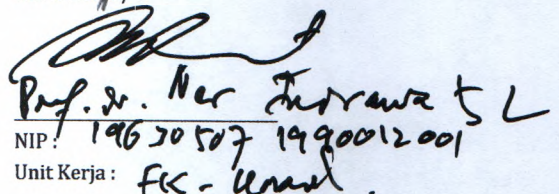 Prof. dr. Nur Indrawa
NIP : 19630507 1990012001
Unit Kerja : FK - Unand